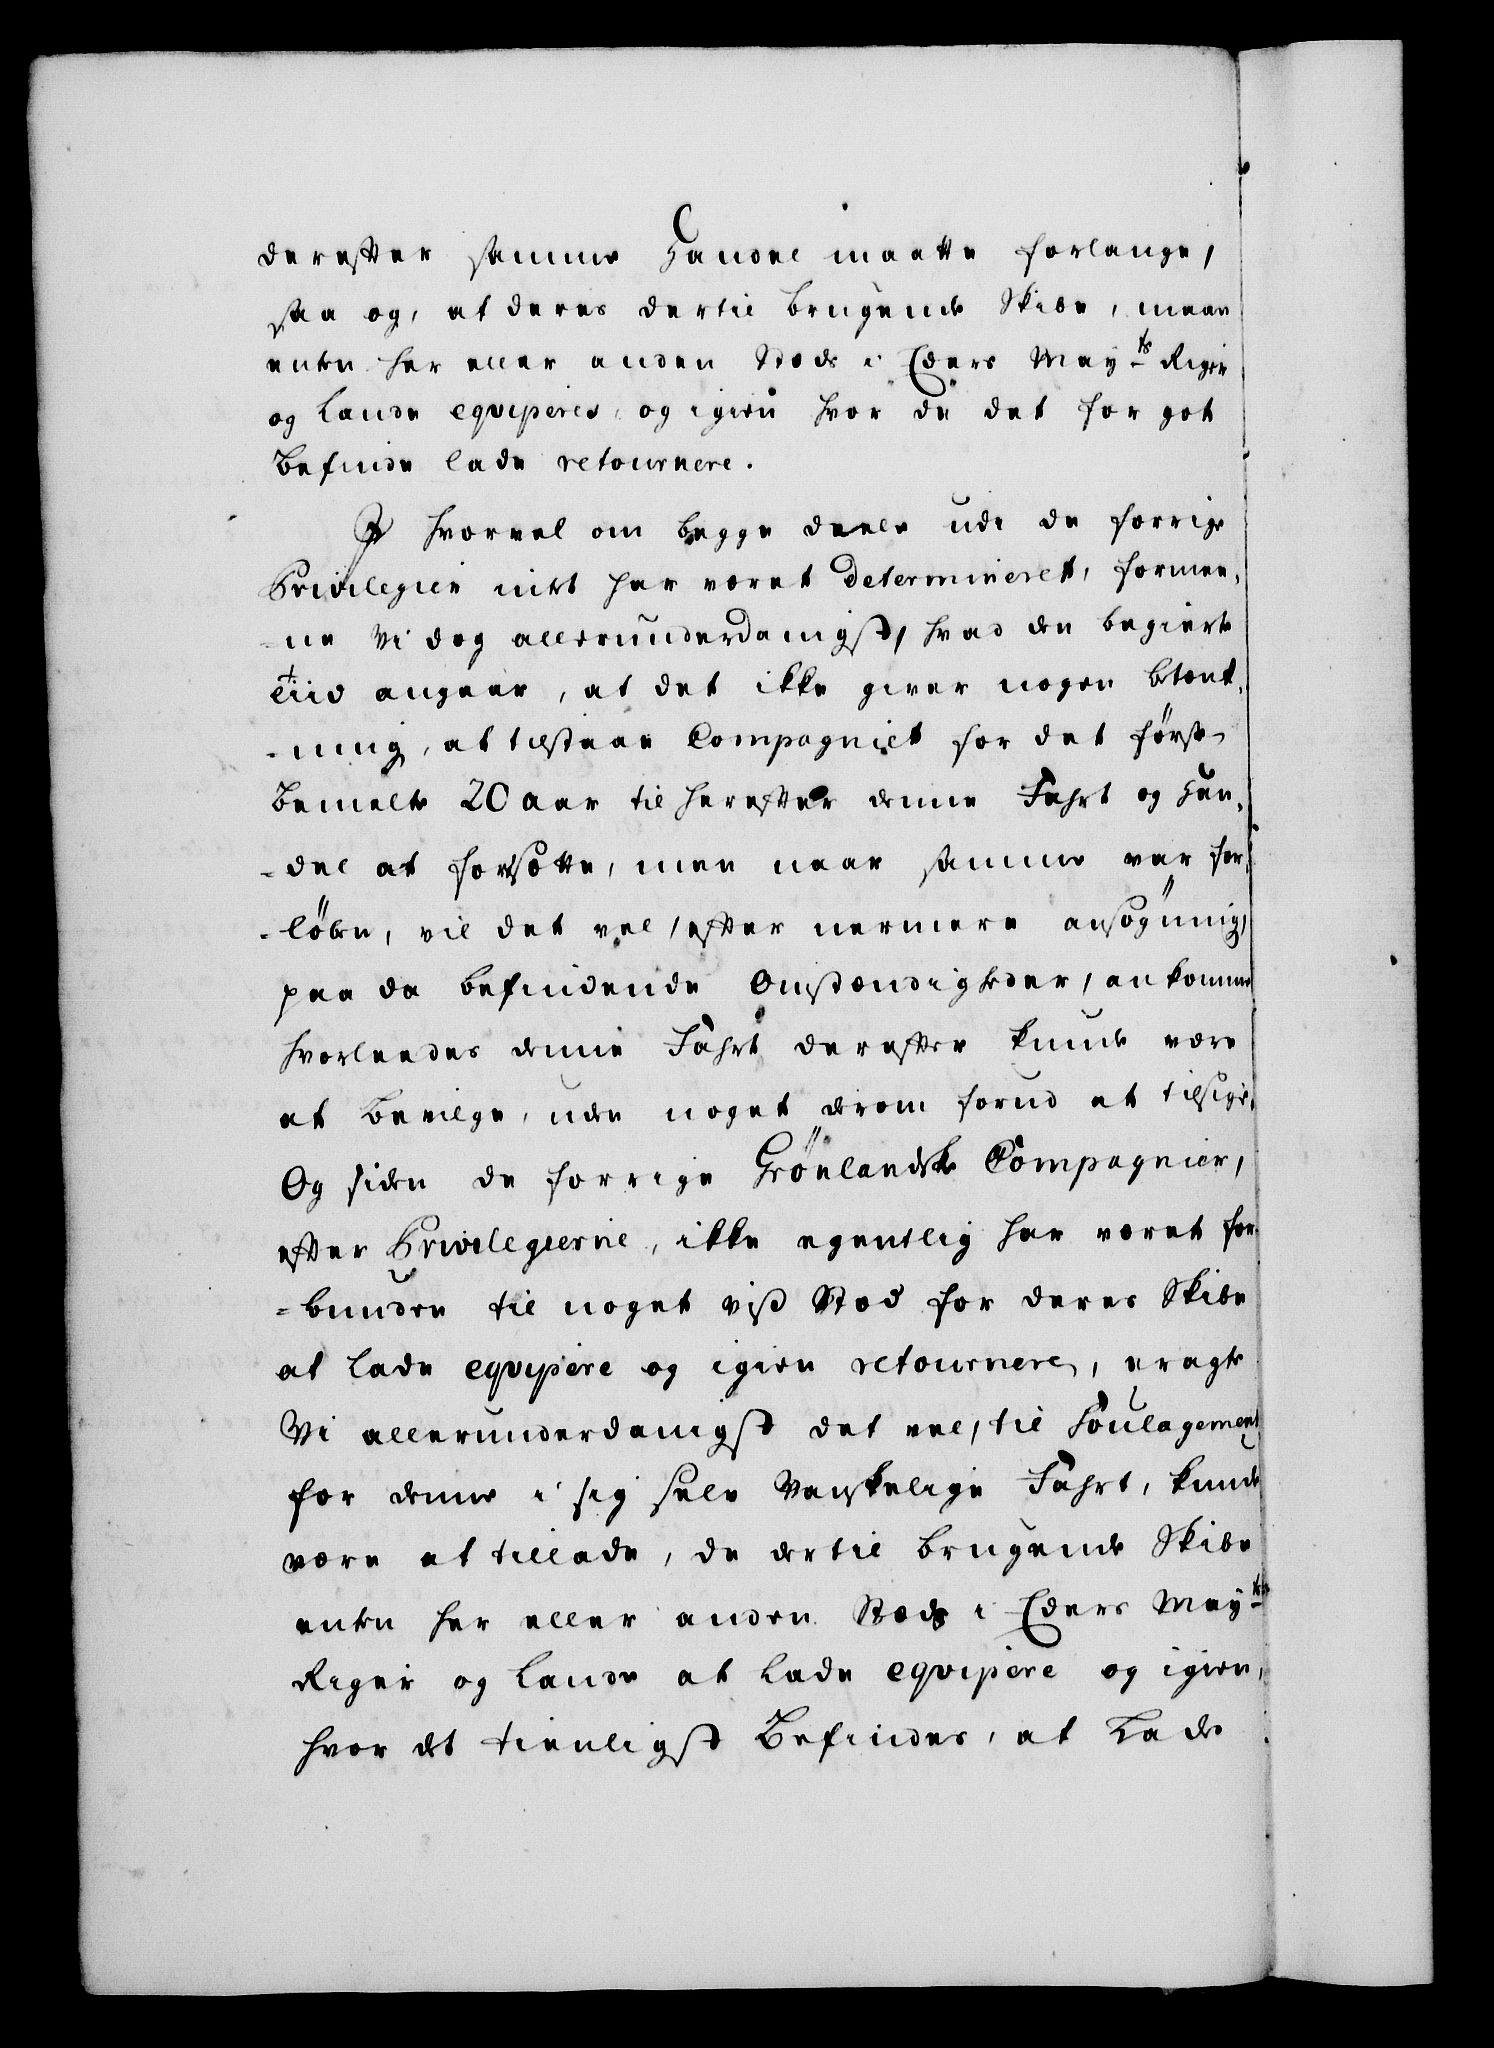 derefter samme Handel maatte forlange,
saa og, at deres dertil brugende Skibe, maae
enten her eller anden Stæds i Eders May:ts Riger
og Lande eqviperes, og igien hvor de det for got
befinde lade retournere.
I hvorvel om begge deele udi de forrige
Privilegier intet har været determineret, formee¬
-ne Vi dog allerunderdanigst, hvad den begierte
tiid angaar, at det ikke giver nogen betænk¬
-ning, at tilstaae Compagniet for det første
bemelte 20 aar til herefter denne Fahrt og Han¬
-del at forsætte, men naar samme var for¬
-løben, vil det vel, efter nermere ansøgning,
paa da befindende Omstændigheder, ankomme
hvorleedes denne Fahrt derefter kunde være
at bevilge, uden noget derom forud at tilsige.
Og siden de forrige Grønlandske Compagnier,
efter Privilegierne, ikke egentlig har været for¬
-bunden til noget vist Stæd for deres Skibe
at lade eqvipere og igien retournere, eragte
Vi allerunderdanigst det vel, til Soulagement
for denne i sig selv Vanskelige Fahrt, kunde
være at tillade, de dertil brugende Skibe
enten her eller anden Stæds i Eders May:ts
Riger og Lande at lade eqvipere og igien,
hvor det tienligst befindes, at lade